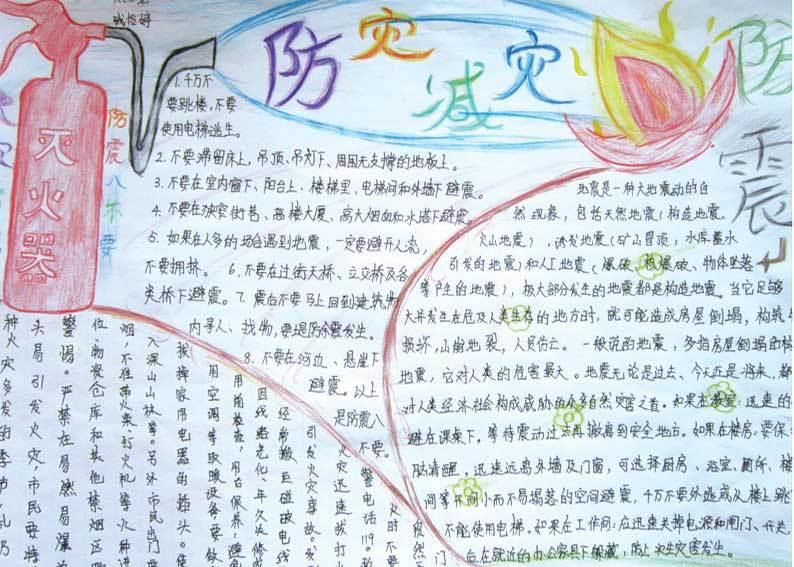 防灾减灾
防
震
灭火器
防震八不要
1.千万不
要跳楼,不要
使用电梯逃生。
2.不要滞留床上,吊顶、吊灯下、周围无支撑的地板上。
3.不要在室内窗下、阳台上、楼梯里、电梯间和外墙下避震。
4.不要在狭窄街巷、高楼大厦、高大烟囱和水塔下避震。
5.如果在人多的场合遇到地震,一定要避开人流,
不要拥挤。 6.不要在过街天桥、立交桥及各
类桥下避震。7.震后不要马上回到建筑物
内寻人、找物,要提防余震发生。
8.不要在河边、悬崖下
避震。以上
是防震八
不要。
地震是一种大地震动的自
然现象,包括天然地震(构造地震、
火山地震),诱发地震(矿山冒顶,水库蓄水
引发的地震)和人工地震(爆破、核爆破、物体坠落
等产生的地震),极大部分发生的地震都是构造地震。当它足够
大并发生在危及人类生存的地方时,就可能造成房屋倒塌,构筑
损坏,山崩地裂,人员伤亡。一般说的地震,多指房屋倒塌的
地震,它对人类的危害最大。地震无论是过去、今天还是将来,都
对人类经济社会构成威胁的众多自然灾害之首。如果在教室:迅速
避在课桌下。等待震动过去再撤离到安全地方。如果在楼房:要保
脑清醒,迅速远离外墙及门窗,可选择厨房、浴室、厕所、楼
间等开间小而不易塌落的空间避震,千万不要外逃或从楼上跳
不能使用电梯。如果在工作间:应迅速关掉电源和闸门、开关、
门 台在就近的办公家具下躲藏,防止次生灾害发生。
警电话119。
火灾迅速拨打火
引发火灾事故。发
经常搬压磁破电线
因线路老化、年久失修
用前检查,用后保养,避免
用空调等取暖设备要
拔掉家用电器的插头。使
入深山山林等。另外市民出门要
烟,不准带火柴打火机等火种进
位、物资仓库和其他禁烟区
警惕。严禁在易燃易爆
头易引发火灾,市民要
种火灾多发的季节,